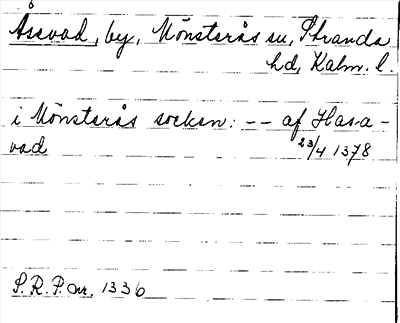 Åssvad, by, Mönsterås sn, Stranda
hd, Kalm. l.
i Mönsterås socken: -- af Hasa-
vad 23/4 1378
S.R.P. nr. 1336